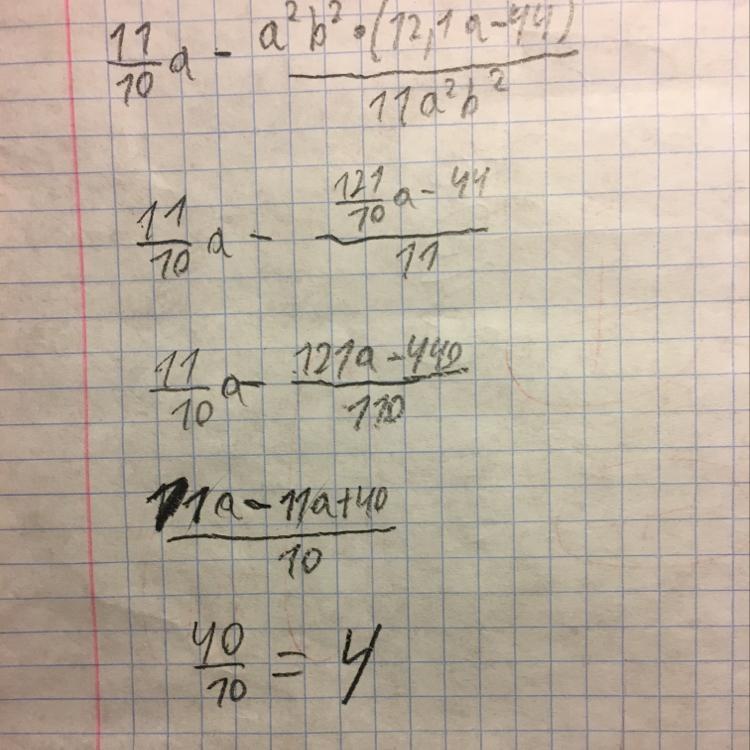 11/10 a - a²b² • (12,1a - 44) / 11a²b²
11/10 a - (121/10 a - 44) / 11
11/10 a - (121a - 440) / 110
(11a - 11a + 40) / 10
40/10 = 4